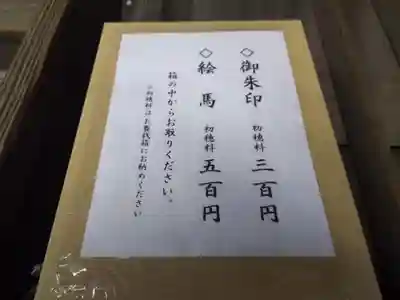 ◇御朱印 初穂料 三百円
◇絵馬 初穂料 五百円
箱の中からお取りください。
※初穂料はお賽銭箱にお納めください